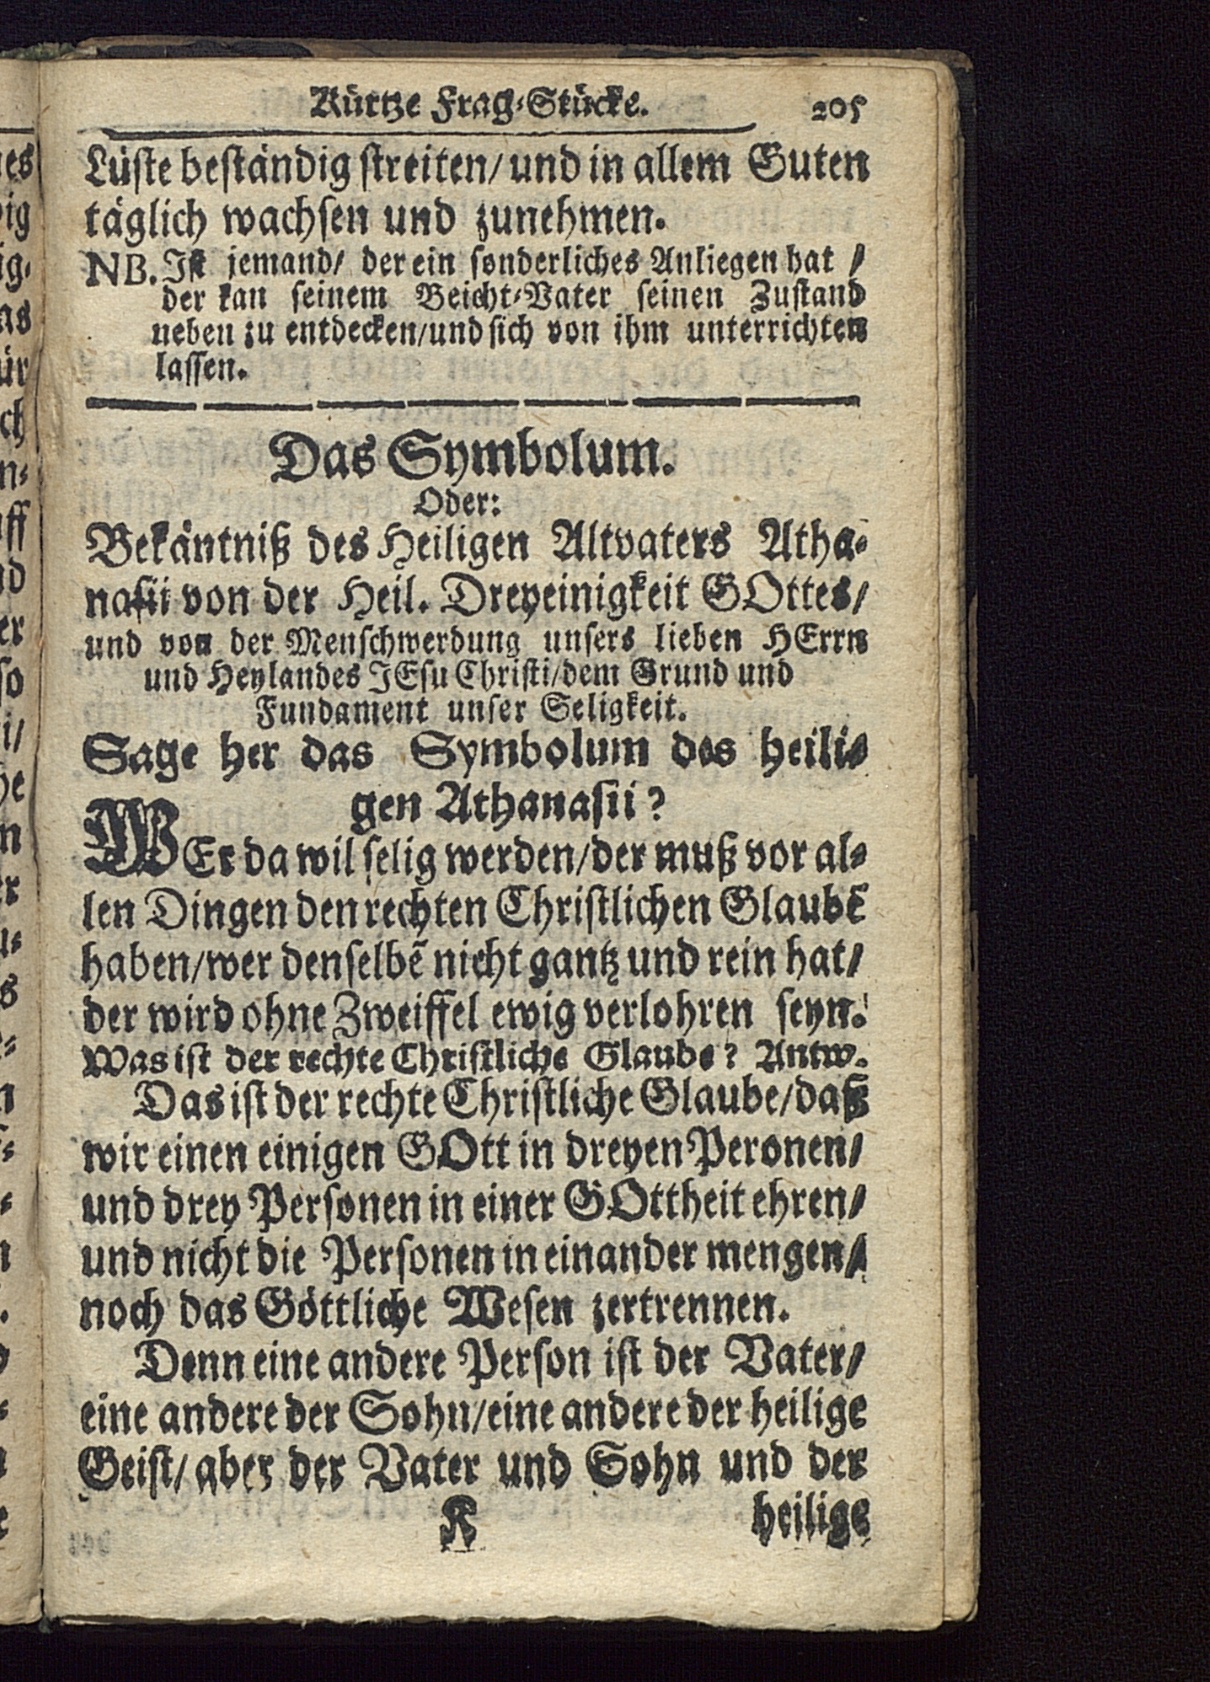 Kürtze Frag-Stücke. 205
Lüste beständig streiten/ und in allem Guten
täglich wachsen und zunehmen.
NB. Ist jemand/ der ein sonderliches Anliegen hat /
der kan seinem Beicht-Vater seinen Zustand
neben zu entdecken/und sich von ihm unterrichten
lassen.
Das Symbolum.
Oder:
Bekäntniß des Heiligen Altvaters Atha-
nasii von der Heil. Dreyeinigkeit GOttes/
und von der Menschwerdung unsers lieben HErrn
und Heylandes JEsu Christi/dem Grund und
Fundament unser Seligkeit.
Sage her das Symbolum des heili-
gen Athanasii?
WEr da wil selig werden/der muß vor al-
len Dingen den rechten Christlichen Glaubē
haben/wer denselbē nicht gantz und rein hat/
der wird ohne Zweiffel ewig verlohren seyn.
Was ist der rechte Christliche Glaube? Antw.
Das ist der rechte Christliche Glaube/daß
wir einen einigen GOtt in dreyen Peronen/
und drey Personen in einer GOttheit ehren/
und nicht die Personen in einander mengen/
noch das Göttliche Wesen zertrennen.
Denn eine andere Person ist der Vater/
eine andere der Sohn/eine andere der heilige
Geist/ aber der Vater und Sohn und der
K heilige